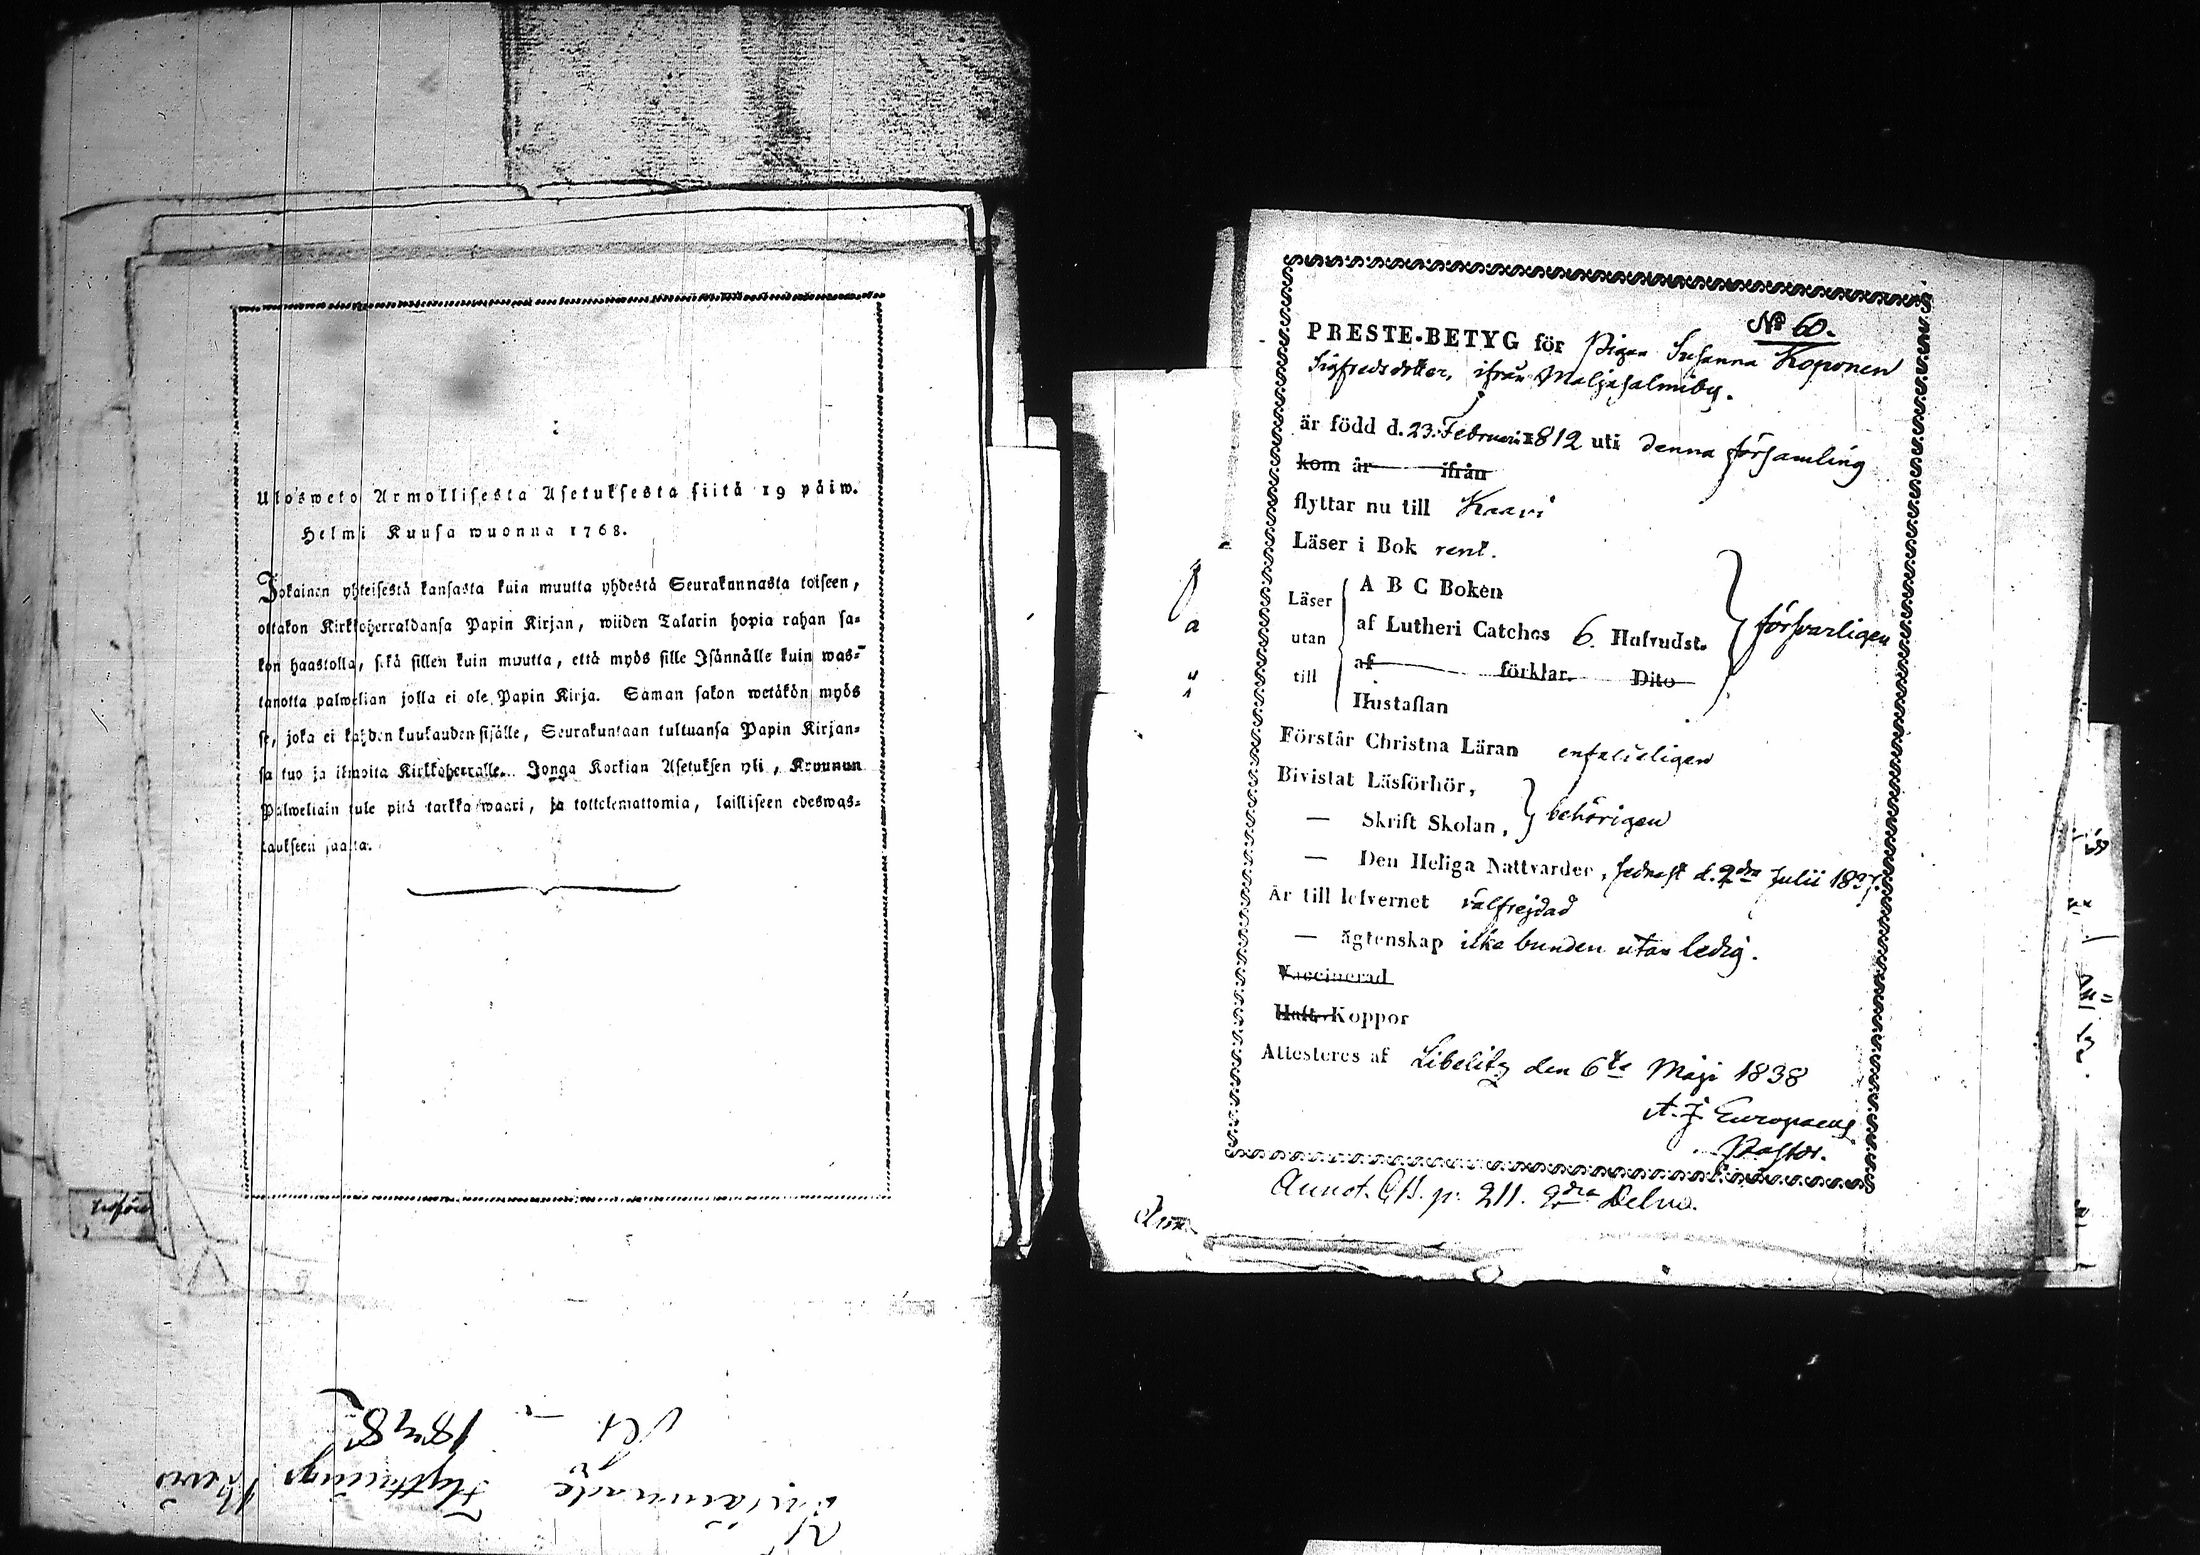 Ulosweto Armollisesta Asetuksesta siitä 19 päiw.
Helmi Kuusa wuonna 1768.
Jokainen yhteisestä kansasta kuin muutta yhdestä Seurakunnasta toiseen,
ottakon Kirkkoherraldansa Papin Kirjan, wiiden Talarin hopia rahan sa-
kon haastolla, sekä sillen kuin muutta, että myös sille Isännälle kuin was-
tanotta palwelian jolla ei ole Papin Kirja. Saman sakon wetäkön myös
se, joka ei kahden kuukauden sisälle, Seurakuntaan tultuansa Papin Kirjan-
sa tuo ja ilmoita Kirkkoherralle. Jonga Korkian Asetuksen yli, Kruunun
Palweliain tule pitä tarkka waari, ja tottelemattomia, lailliseen edeswas-
taukseen saatta.
Flyttnings
No 60.
PRESTE-BETYG för Pigan Susanna Koponen
Sigfredsdotter, ifrån Maljasalmiby.
är född d. 23 Februari 1812 uti denna församling
kom år ifrån
flyttar nu till Kaavi
Läser i Bok rent.
Läser utan till
A B C Boken
af Lutheri Catches 6. Hufvudst.
försvarligen
af förklar. Dito
Hustaflan
Förstår Christna Läran enfaldeligen
Bivistat Läsförhör,
— Skrift Skolan, behörigen
— Den Heliga Nattvarden, sednast d. 2dra Julii 1837.
Är till lefvernet välfrejdad
— ägtenskap icke bunden utan ledig.
Vaccinerad
Haft Koppor
Attesteres af Libelitz den 6te Maji 1838
A. J. Europaeus
Pastor.
Annot. p. 211. 2dra Delen.